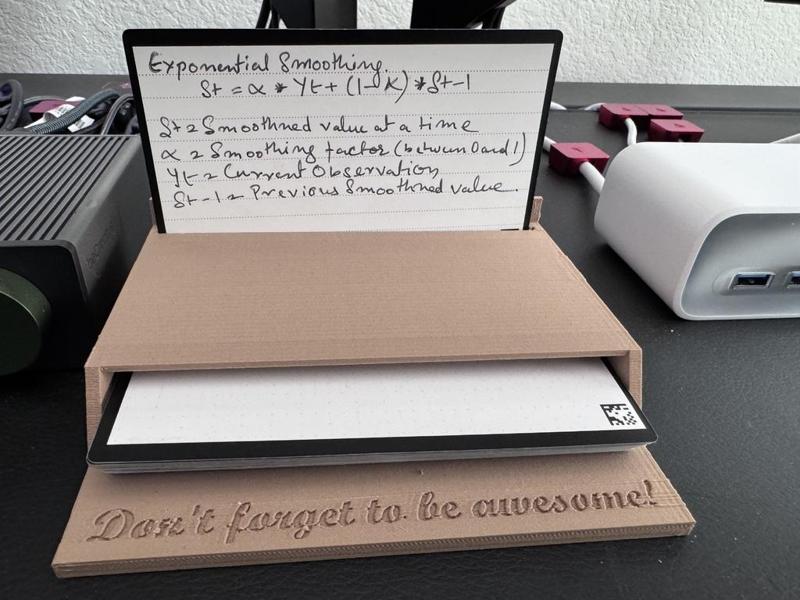 Exponential Smoothing.
St = α * Yt + (1-α) * St-1
St = Smoothned value at a time
α = Smoothing factor (between 0 and 1)
Yt = Current Observation
St-1 = Previous Smoothned value.
Don't forget to be awesome!